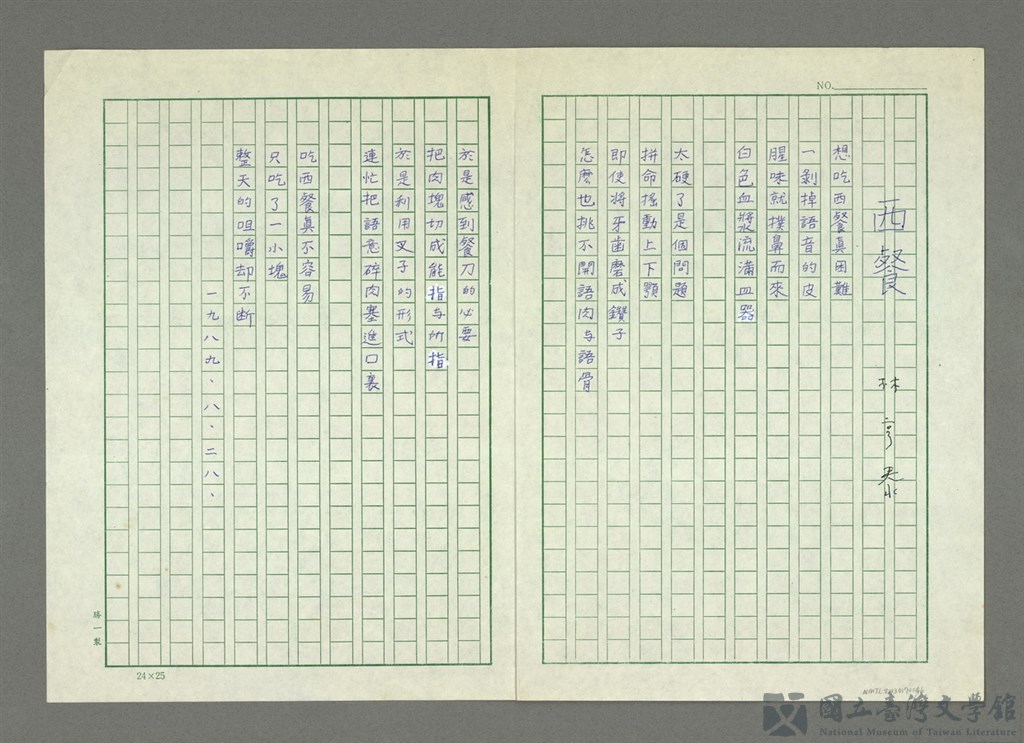 NO.
西餐
林亨泰
想吃西餐真困難
一剝掉語音的皮
腥味就撲鼻而來
白色血漿流滿皿器
太硬了是個問題
拼命搖動上下顎
即使將牙齒磨成鑽子
怎麽也挑不開語肉与語骨
於是感到餐刀的必要
把肉塊切成能指与所指
於是利用叉子的形式
連忙把語意碎肉塞進口裏
吃西餐真不容易
只吃了一小塊
整天的咀嚼却不断
一九八九、八、二八、
勝一製
24×25
國立臺灣文學館
National Museum of Taiwan Literature